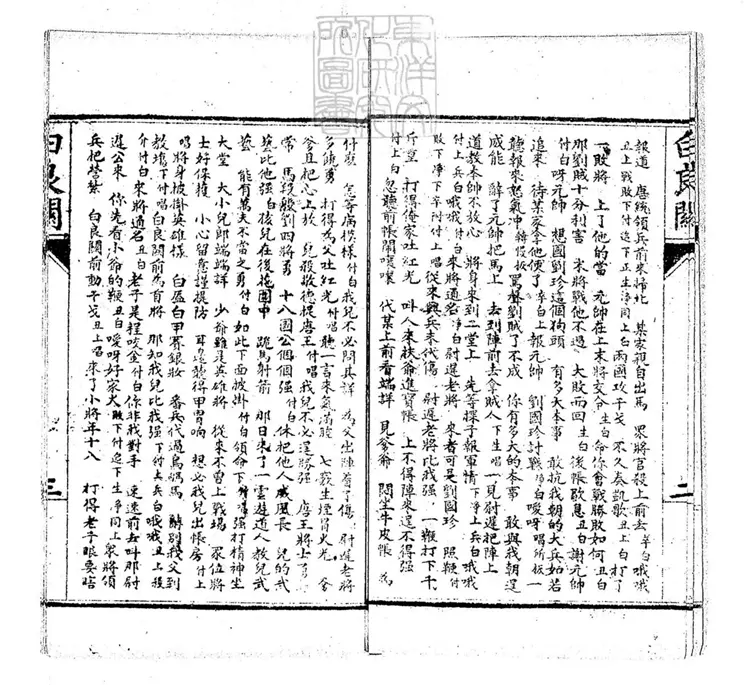 白良關
二
報道 唐統領兵前來掃北 某家親自出馬 眾將官殺上前去卒白哦哦
丑上戰敗下付追下正生淨同上白兩國攻干戈 不久奏凱歌丑上白打了
一敗將 上了他的當 元帥在上末將交令生白命你會戰勝敗如何丑白
那劉賊十分利害 末將戰他不過 大敗而回生白後帳歇息丑白謝元帥
付白呀元帥 想國劉珍這個狗頭 有多大本事 敢抗我朝的大兵如若
追來 待某家拿他便了卒白上報元帥 劉國珍討戰淨白嗳呀唱所板一
聽報來怒氣冲轉慢板罵聲劉賊了不成 你有多大的本事 敢與我朝逞
威能 辭了元帥把馬上 去到陣前去拿賊人下生唱一見尉遲把陣上
道教本帥不放心 將身來到二堂上 先等探子報軍情下 兵白哦哦
付上兵白哦哦付白來將通名淨白尉遲老將 來者可是劉國珍 照鞭付
敗下淨下卒 付上唱從來與兵未代傷 尉遲老將比我强 一鞭打下千
斤重 打得俺家吐紅光 叫人來扶爺進寶帳 上不得陣來逞不得强
付上白 忽聽前帳鬧嚷嚷 代某上前看端詳 見爹爺 悶坐牛皮帳 為
什麼 怎等滿模樣付白我兒不必問其詳 為父出陣着了傷 尉遲老將
多饒勇 打得為父吐紅光 唱聽一言來氣滿胸 七竅生烟冒火光 爹
爹且把心上放 兒殺敬德捉唐王付唱我兒不必逞勝强 唐王將士
常 馬段殷劉四將勇 十八國公個個强 白休把他人威風長 兒的武
藝比他强白後兒在後花園中 跑馬射箭 那日來了一雲遊道人教兒武
藝 能有萬夫不當之勇付白如此下面披掛 白領命下 唱强打精神坐
大堂 大小兒郎端端詳 少爺雖是英雄將 從來不曾上戰場 眾位將
士好保捜 小心留意謹提防 耳邊聽得甲胄响 想必我兒出帳房付上
唱將身披掛英雄樣 白盔白甲賽銀妝 番兵代過烏騅馬 辭別我父到
教塲下付唱白良關前為首將 那知我兒比我强下付上兵白哦哦丑上殺
介付白來將通名丑白老子是程咬金付白你非我對手 速速前去叫那尉
遲公來 你先看小爺的鞭丑白嗳呀好家火敗下付追下生淨同上眾將領
兵把營紮 白良關前動干戈丑上唱來了小將年十八 打得老子眼要瞎
白良關
三